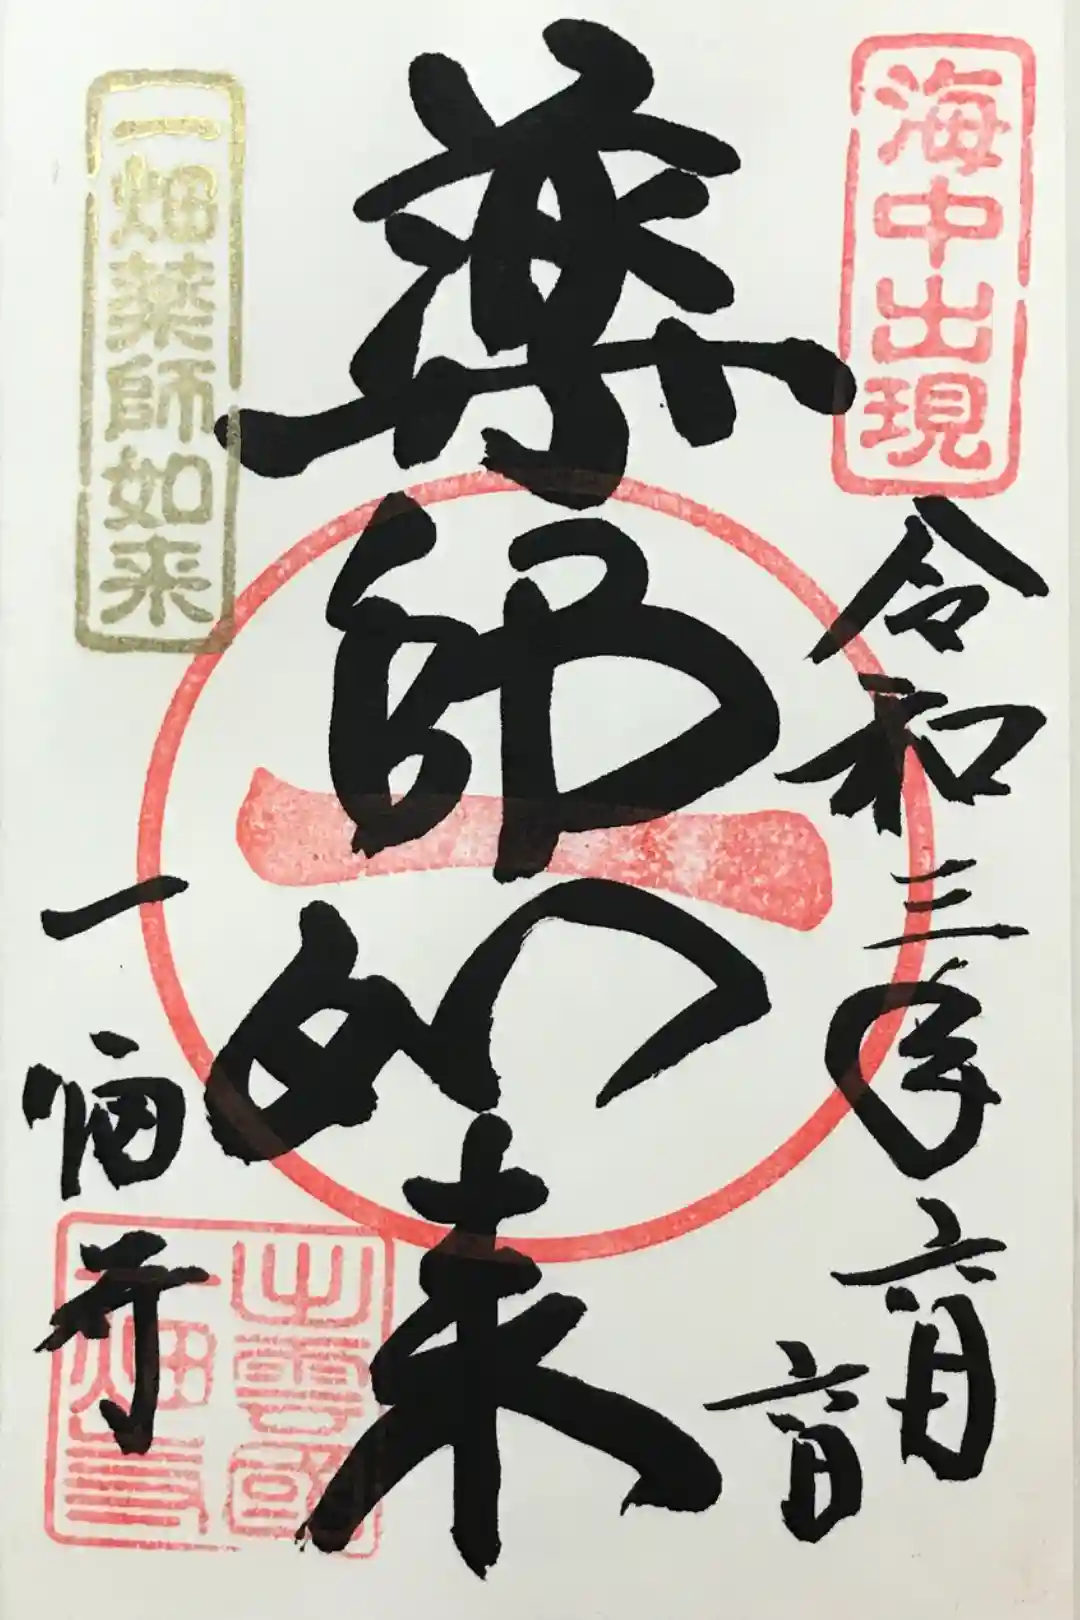 海中出現
令和三年六月六日
薬師如来
一畑薬師如来
一畑寺
出雲國
一畑寺